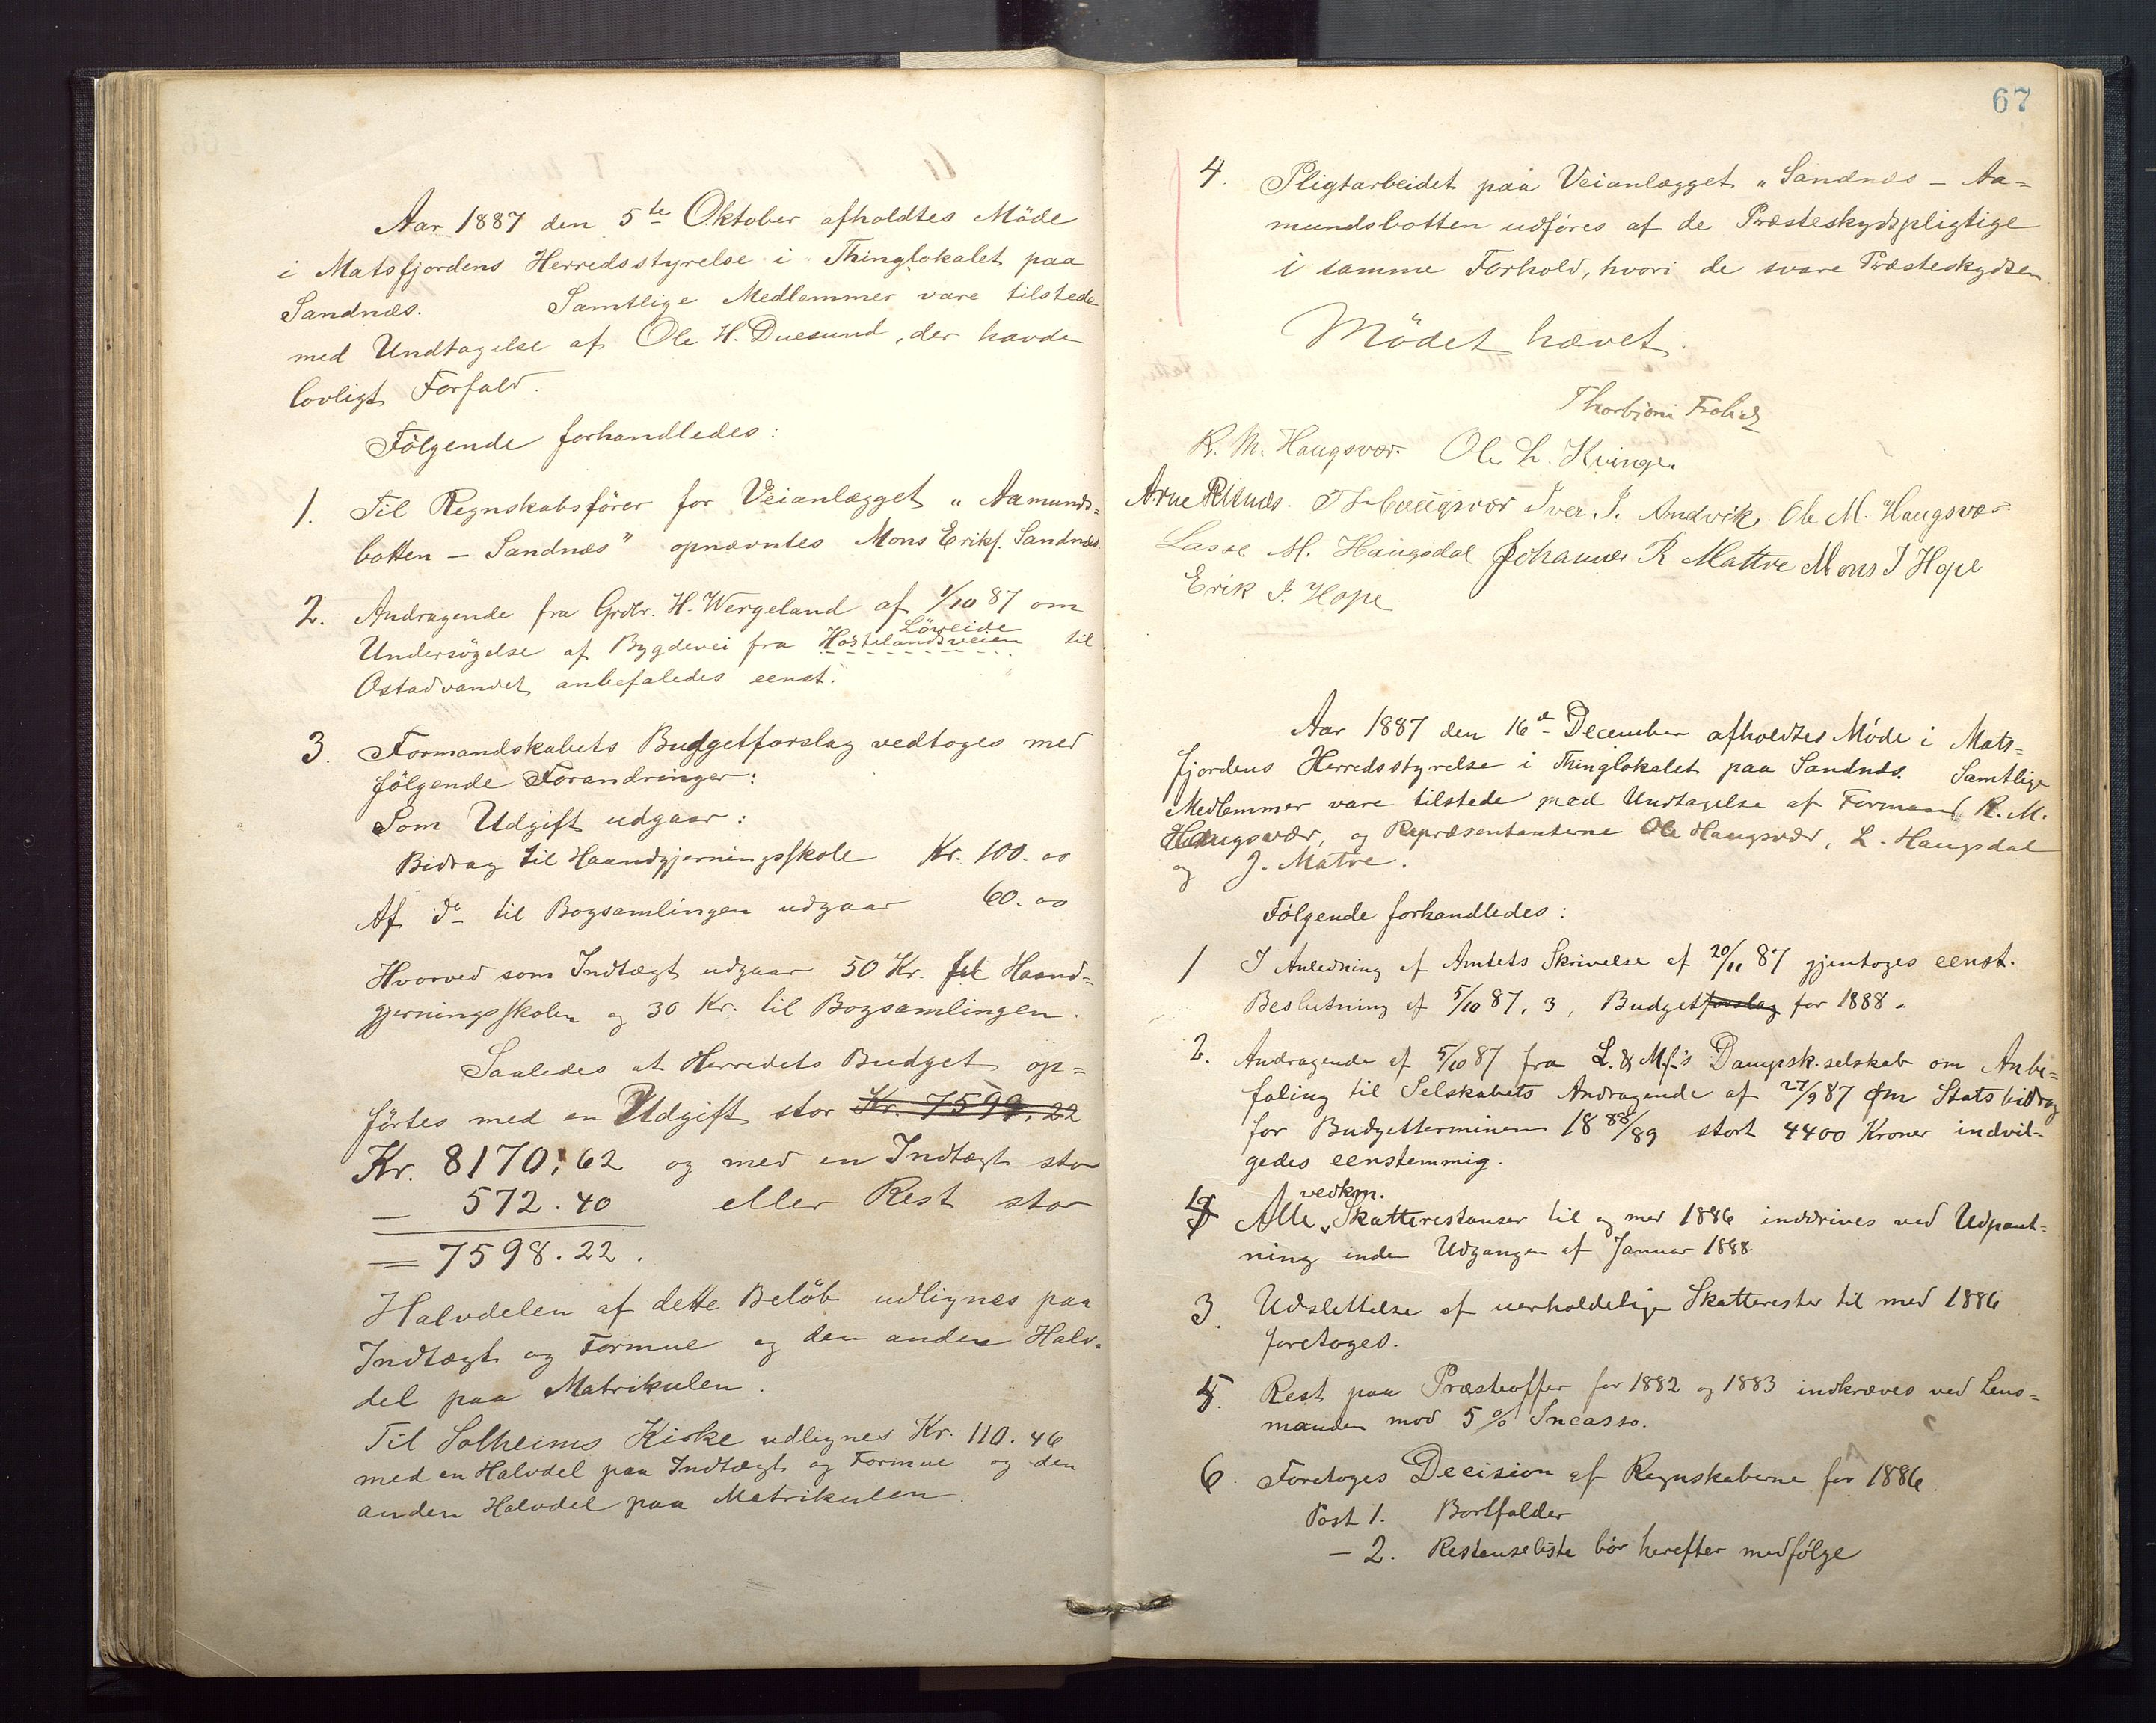 Aar 1887 den 5te Oktober afholdtes Möde
i Matsfjordens Herredsstyrelse i Thinglokalet paa
Sandnæs. Samtlige Medlemmer vare tilstede
med Undtagelse af Ole H. Duesund, der havde
lovligt Forfald.
Fölgende forhandledes:
1. Til Regnskabsförer for Veianlægget „Aamunds=
botten – Sandnæs" opnævntes Mons Eriks. Sandnæs
2. Andragende fra Grdbr. H. Wergeland af 1/10 87 om
Löveide
Undersögelse af Bygdevei fra Hostelandsveien til
Ostadvandet anbefaledes eenst.
3. Formandskabets Budgetforslag vedtoges med
fölgende Forandringer:
Som Udgift udgaar:
Bidrag til Haandgjerningsskole Kr. 100.00
Af do til Bogsamlingen udgaar 60.00
Hvorved som Indtægt udgaar 50 Kr. til Haand=
gjerningsskolen og 30 Kr. til Bogsamlingen.
Saaledes at Herredets Budget op=
förtes med en Udgift stor Kr. 7599.22
Kr. 8170.62 og med en Indtægt stor
– 572.40 eller Rest stor
= 7598.22.
Halvdelen af dette Belöb udlignes paa
Indtægt og Formue og den anden Halv=
del paa Matrikulen.
Til Solheims Kirke udlignes Kr. 110.46
med en Halvdel paa Indtægt og Formue og den
anden Halvdel paa Matrikulen.
67
4. Pligtarbeidet paa Veianlægget „Sandnæs – Aa=
mundsbotten udföres af de Præsteskydspligtige
i samme Forhold, hvori de svare Præsteskydsen.
Mödet hævet.
Thorbjörn
R. M. Haugsvær. Ole L. Kvinge.
Arne Haugsvær Iver I. Andvik. Ole M. Haugsvær
Lasse M. Haugsdal Johannes R Mattre Mons I Hope
Erik I. Hope
Aar 1887 den 16de December afholdtes Möde i Mats=
fjordens Herredsstyrelse i Thinglokalet paa Sandnæs. Samtlige
Medlemmer vare tilstede med Undtagelse af Formand R. M.
Haugsvær, og Repræsentanterne Ole Haugsvær, L. Haugsdal
og J. Matre.
Fölgende forhandledes:
1 I Anledning af Amtets Skrivelse af 20/11 87 gjentoges eenst.
Beslutning af 5/10 87, 3, Budgetforslag for 1888.
2. Andragende af 5/10 87 fra L. & M.f.'s Dampsk.selskab om Anbe=
faling til Selskabets Andragende af 27/9 87 om Statsbidrag
for Budgetterminen 1888/89 stort 4400 Kroner indvil=
gedes eenstemmig.
vedkm.
4 Alle Skatterestanser til og med 1886 inddrives ved Udpant=
ning inden Udgangen af Januar 1888.
3. Udslettelse af uerholdelige Skatterester til med 1886
foretoges.
5. Rest paa Præsteoffer for 1882 og 1883 indkræves ved Lens=
manden mod 5 % Incasso.
6. Foretoges Decision af Regnskaberne for 1886.
Post 1. Bortfalder
– 2. Restanseliste bör herefter medfölge